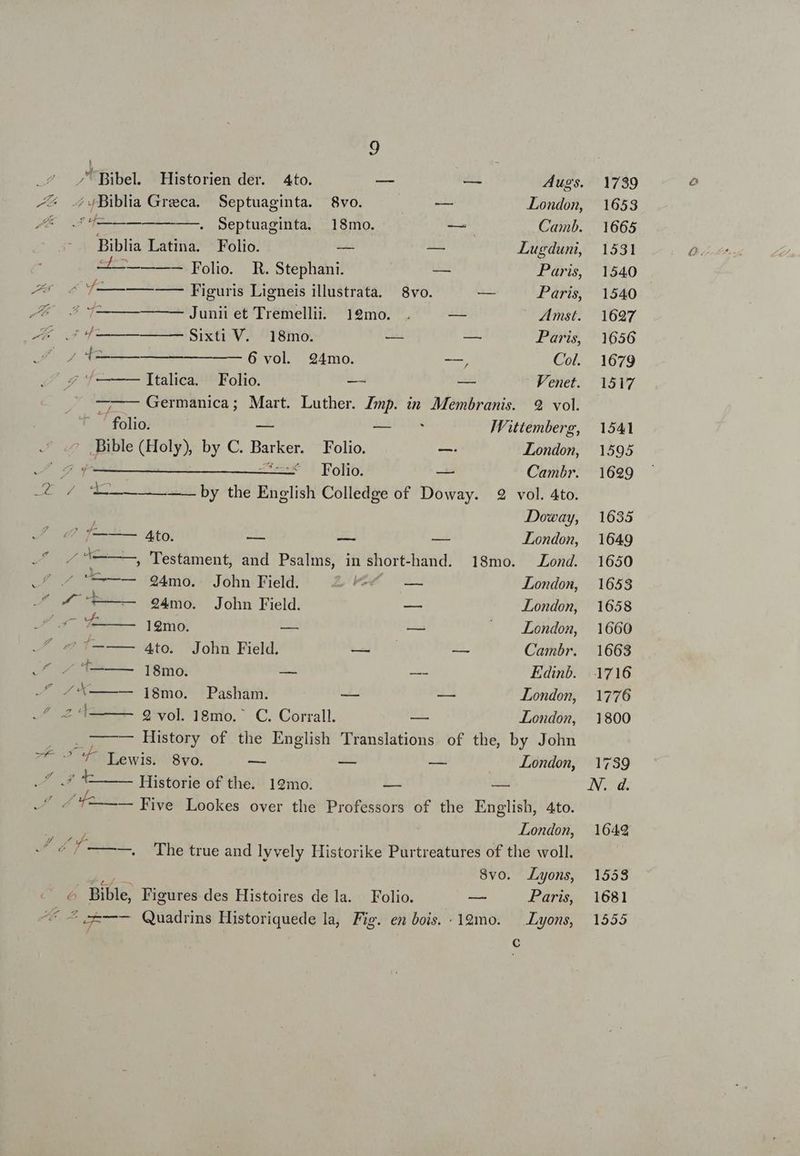 9
Bibel. Historien der. 4to. — — Augs. 1739
Biblia Græca. Septuaginta. 8vo. — London, 1653
———. Septuaginta. 18mo. — Camb. 1665
Biblia Latina. Folio. — — Lugduni, 1531
——— Folio. R. Stephani. — Paris, 1540
——— Figuris Ligneis illustrata. 8vo. — Paris, 1540
——— Junii et Tremellii. 12mo. . — Amst. 1627
——— Sixti V. 18mo. — — Paris, 1656
——— 6 vol. 24mo. —, Col. 1679
——— Italica. Folio. — — Venet. 1517
——— Germanica; Mart. Luther. Imp. in Membranis. 2 vol.
folio. — — Wittemberg, 1541
Bible (Holy), by C. Barker. Folio. — London, 1595
——— Folio. — Cambr. 1629
——— by the English Colledge of Doway. 2 vol. 4to.
Doway, 1635
——— 4to. — — — London, 1649
———, Testament, and Psalms, in short-hand. 18mo. Lond. 1650
——— 24mo. John Field. — London, 1653
——— 24mo. John Field. — London, 1658
——— 12mo. — — London, 1660
——— 4to. John Field. — — Cambr. 1663
——— 18mo. — — Edinb. 1716
——— 18mo. Pasham. — — London, 1776
——— 2 vol. 18mo. C. Corrall. — London, 1800
——— History of the English Translations of the, by John
Lewis. 8vo. — — — London, 1739
——— Historie of the. 12mo. — — N. d.
——— Five Lookes over the Professors of the English, 4to.
London, 1642
———. The true and lyvely Historike Purtreatures of the woll.
8vo. Lyons, 1553
Bible, Figures des Histoires de la. Folio. — Paris, 1681
——— Quadrins Historiquede la, Fig. en bois. 12mo. Lyons, 1555
C